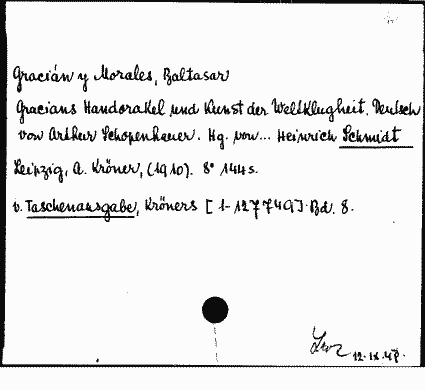 Gracián y Morales, Baltasar
Gracians Handorakel und Kunst der Weltklugheit. Deutsch
von Arthur Schopenhauer. Hg. von... Heinrich Schmidt
Leipzig, A. Kröner, (1910). 8° 144 s.
v. Taschenausgabe, Kröners [1-127749] Bd. 8.
12.IX.48.